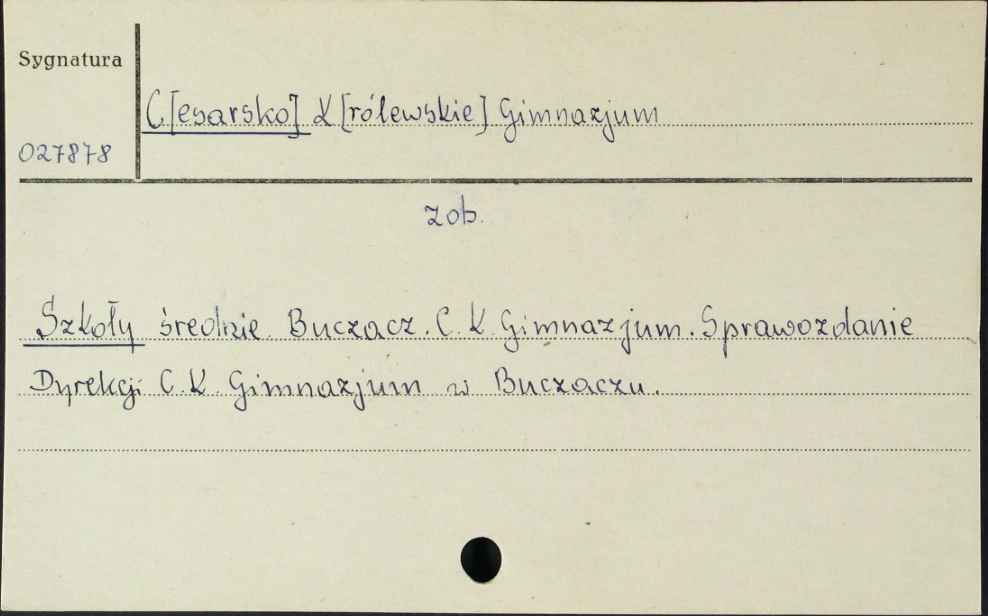 Sygnatura
C[esarsko] K[rólewskie] Gimnazjum
027878
zob.
Szkoły średnie. Buczacz. C. K. Gimnazjum. Sprawozdanie
Dyrekcji C. K. Gimnazjum w Buczaczu.